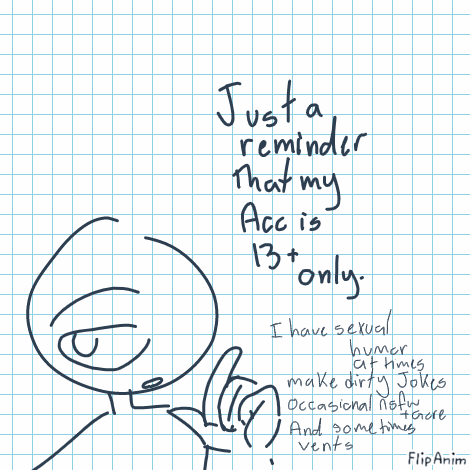 Just a
reminder
that my
Acc is
13+
only.
I have sexual
humor
at times
make dirty Jokes
Occasional nsfw
+ Gore
And sometimes
vents
FlipAnim